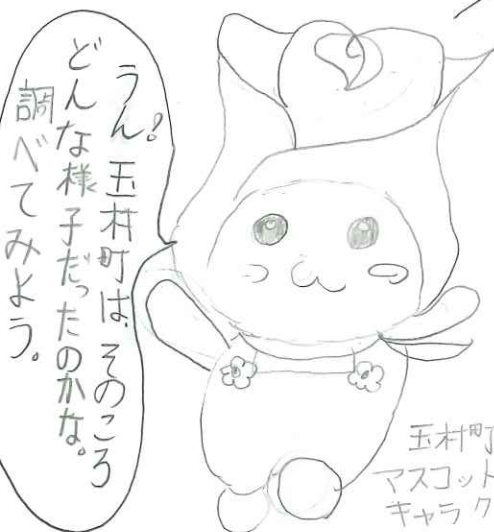 うん！玉村町は、そのころ
どんな様子だったのかな。
調べてみよう。
玉村町
マスコット
キャラク